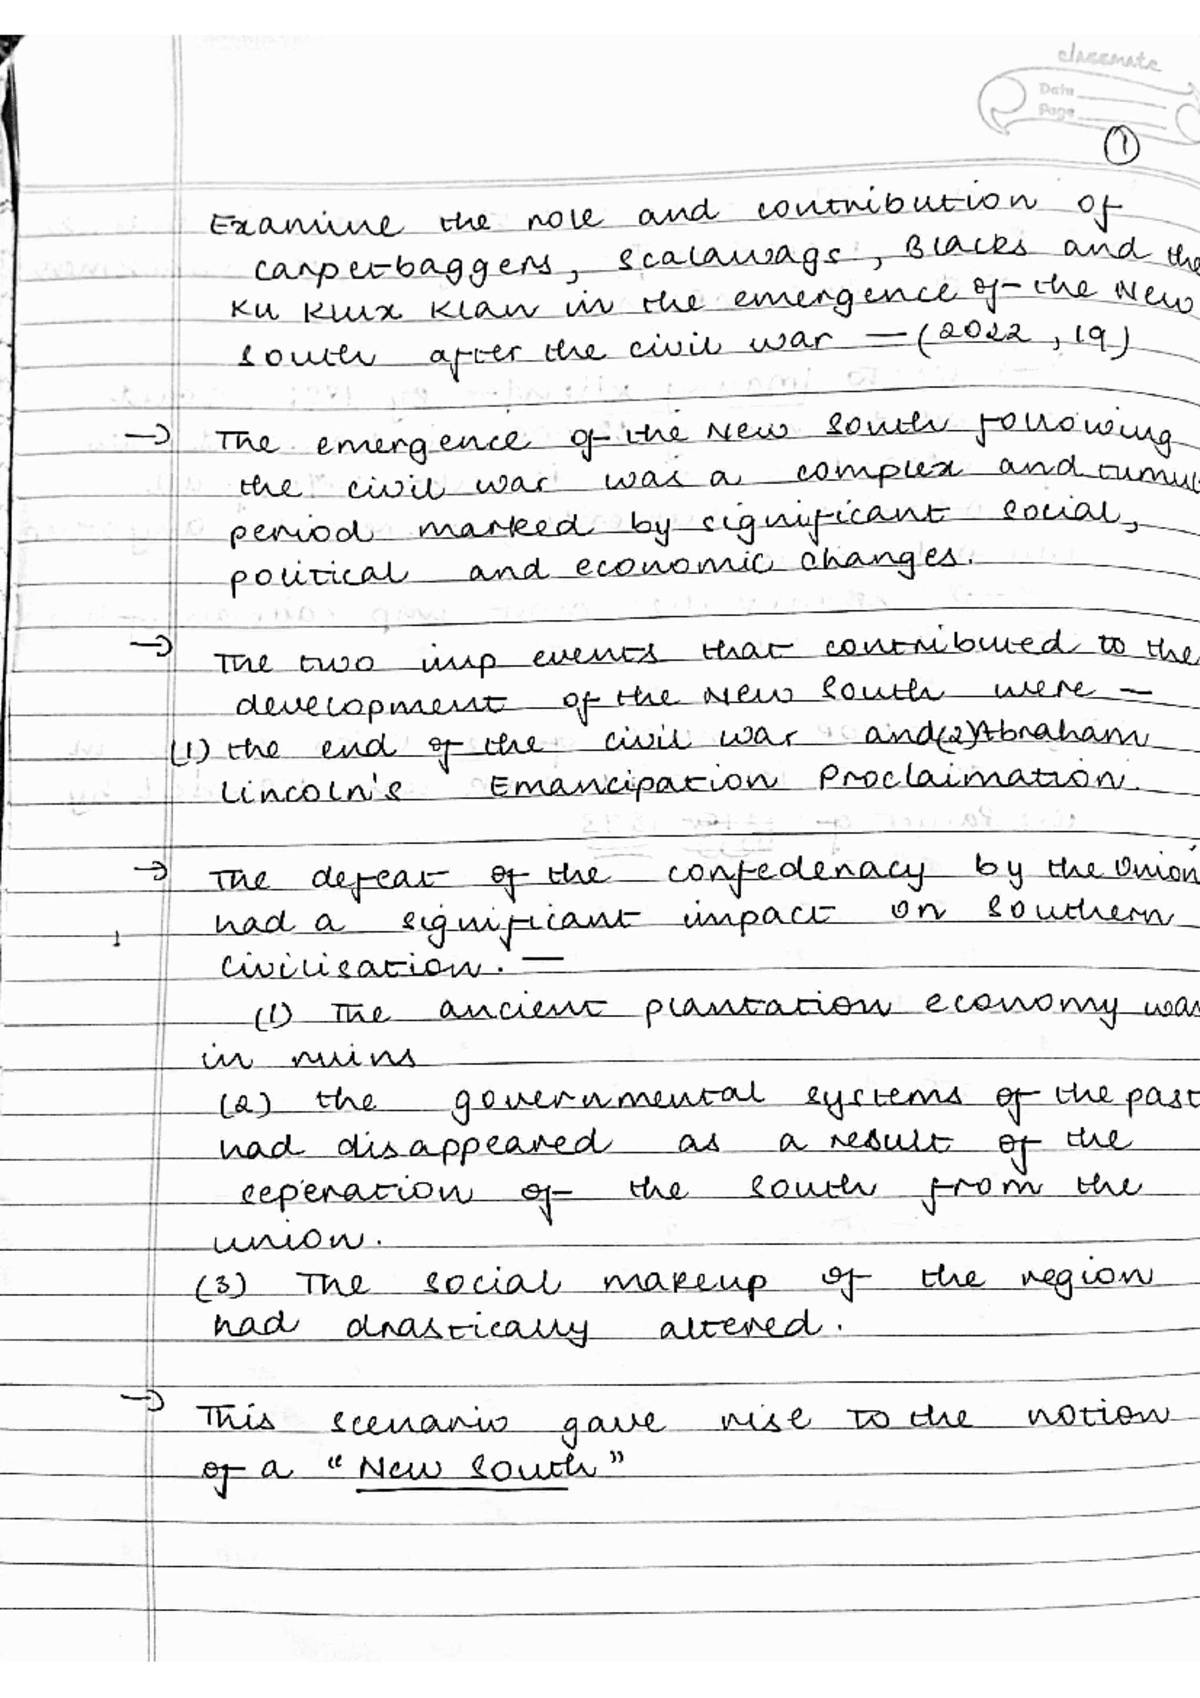 classmate
Date
Page
1
Examine the role and contribution of
carpetbaggers, scalawags, Blacks and the
Ku Klux Klan in the emergence of the New
South after the civil war — (2022, 19)
→ The emergence of the New South following
the civil war was a complex and tumul
period marked by significant social,
political and economic changes.
→ The two imp events that contributed to the
development of the New South were —
(1) the end of the civil war and (2) Abraham
Lincoln's Emancipation Proclaimation.
→ The defeat of the confederacy by the Union
had a significant impact on southern
civilisation. —
(1) The ancient plantation economy was
in ruins
(2) the governmental systems of the past
had disappeared as a result of the
seperation of the south from the
union.
(3) The social makeup of the region
had drastically altered.
→ This scenario gave rise to the notion
of a "New South"